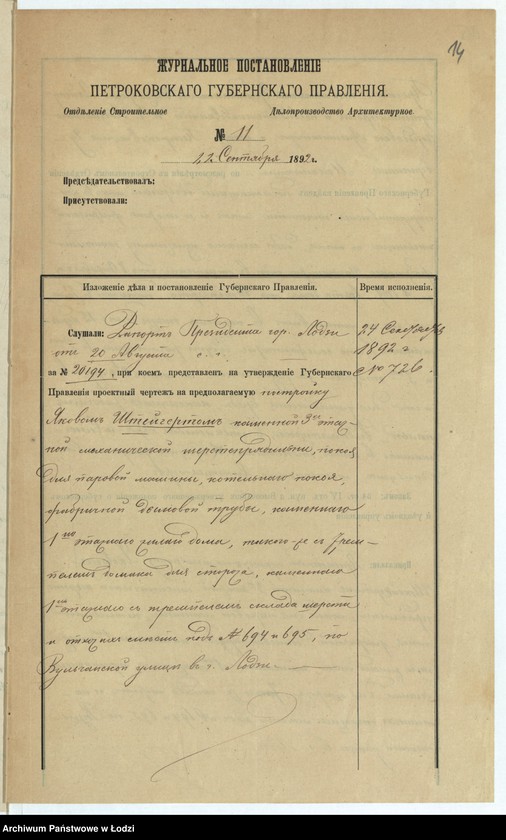 14
ЖУРНАЛЬНОЕ ПОСТАНОВЛЕНІЕ
ПЕТРОКОВСКАГО ГУБЕРНСКАГО ПРАВЛЕНІЯ.
Отдѣленіе Строительное Дѣлопроизводство Архитектурное
№ 11
22 Сентября 1892 г.
Предсѣдательствовалъ:
Присутствовали:
Изложеніе дѣла и постановленіе Губернскаго Правленія. Время исполненія.
Слушали: Рапортъ Президента гор. Лодзи
отъ 20 Августа с. г.
за № 20194, при коемъ представленъ на утвержденіе Губернскаго
Правленія проектный чертежъ на предполагаемую постройку
Яковомъ Штейгертомъ каменной 3хъ этаж-
ной механической шерстепрядильни, покоя
для паровой машины, котельнаго покоя,
фабричной дымовой трубы, каменнаго
1но этажнаго жилаго дома, такого-же съ трем-
пелемъ домика для сторожа, каменнаго
1но этажнаго съ тремпелемъ склада шерсти
и отхожихъ мѣстъ подъ № 694 и 695, по
Вульчанской улицѣ въ г. Лодзи.
24 Сентября
1892 г.
№ 726.
Archiwum Państwowe w Łodzi